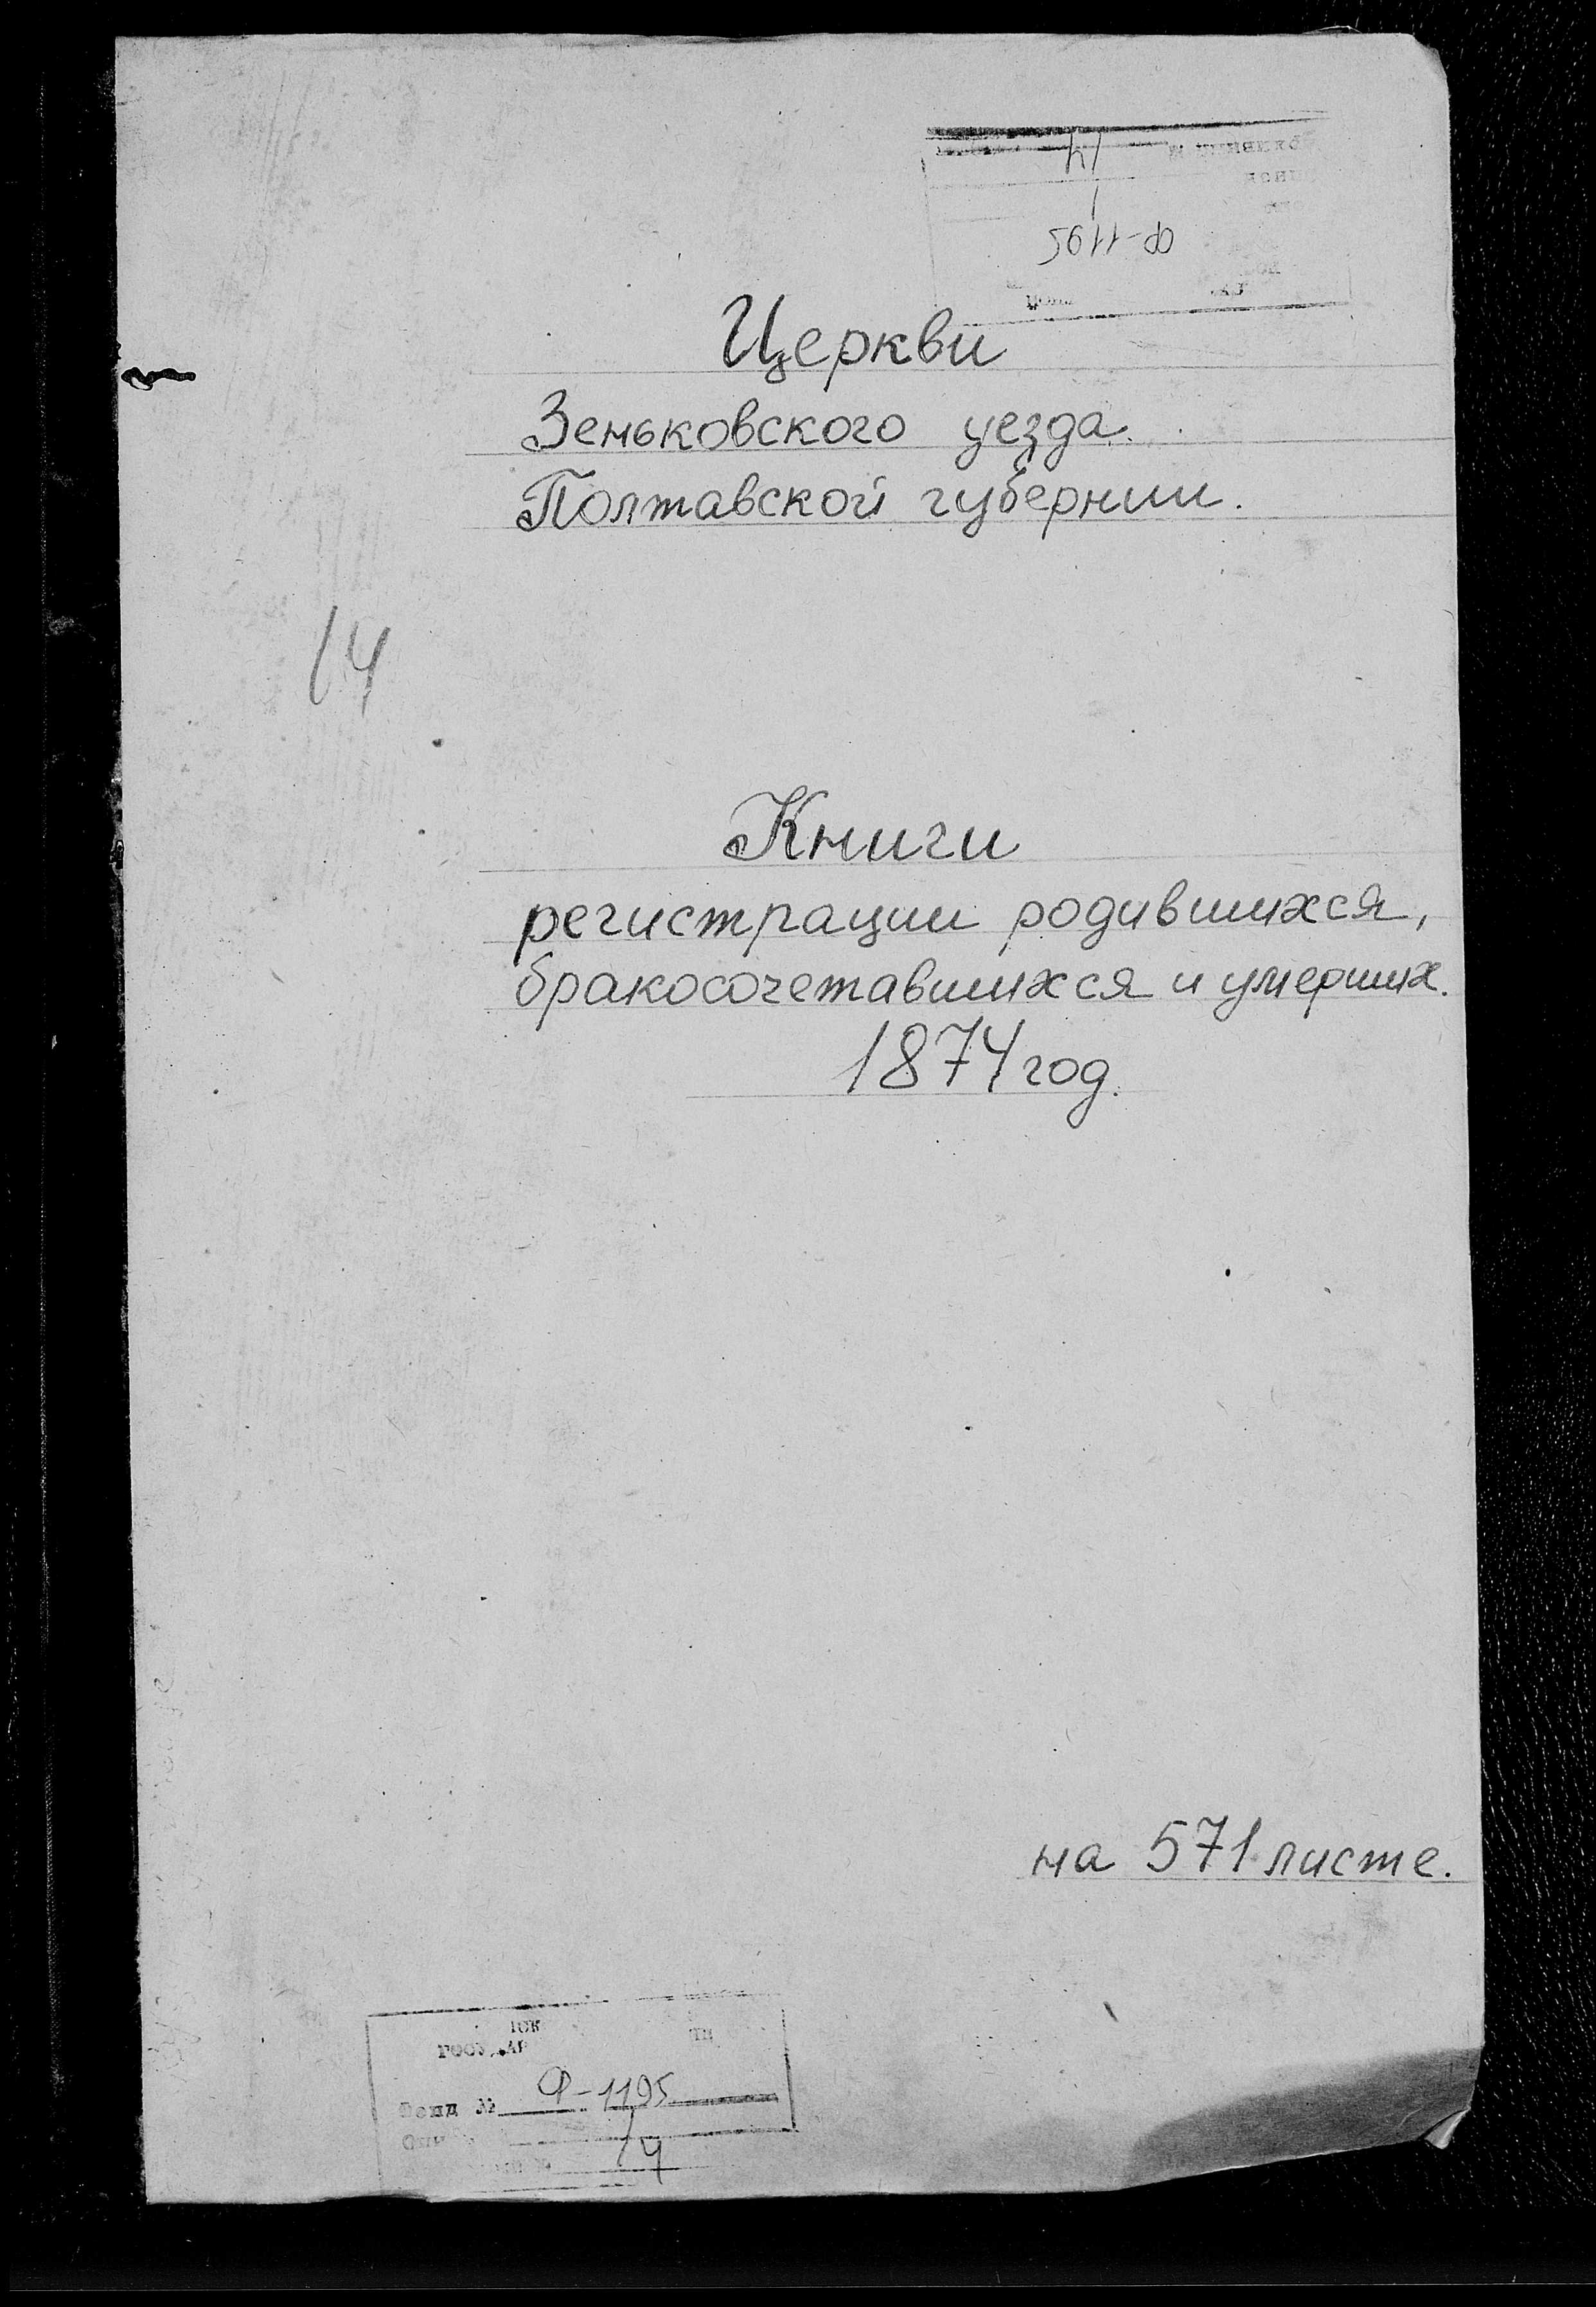 14
Ф-1195
Церкви
Зеньковского уезда.
Полтавской губернии.
14
Книги
регистрации родившихся,
бракосочетавшихся и умерших.
1874 год.
на 571 листе.
Фонд № Ф-1195
1
14